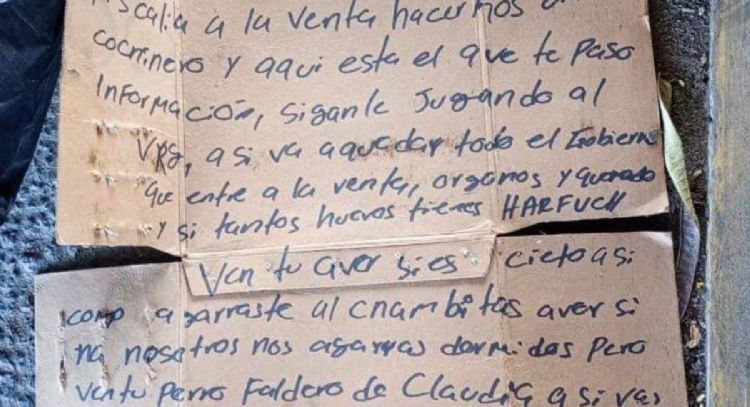 scalia a la venta hacernos
cocrinero y aqui esta el que te paso
Información, siganle Jugando al
VRg, a si va a quedar todo el Gobierno
que entre a la venta, organos y querado
y si tantos huevos tienes HARFUCH
Ven tu aver si es cierto asi
como agarraste al chambitas aver si
na nosotros nos agarras dormidos pero
ven tu perro Faldero de Claudia a si vas